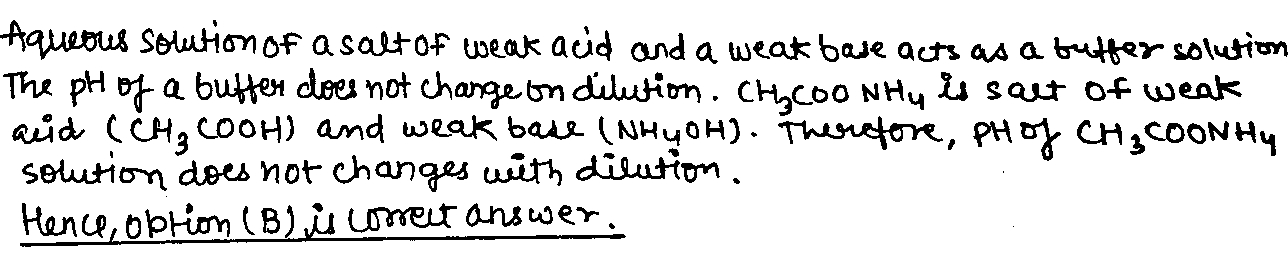 Aqueous solution of a salt of weak acid and a weak base acts as a buffer solution
The pH of a buffer does not change on dilution. CH₃COO NH₄ is salt of weak
acid (CH₃COOH) and weak base (NH₄OH). Therefore, PH of CH₃COONH₄
solution does not changes with dilution.
Hence, option (B) is correct answer.